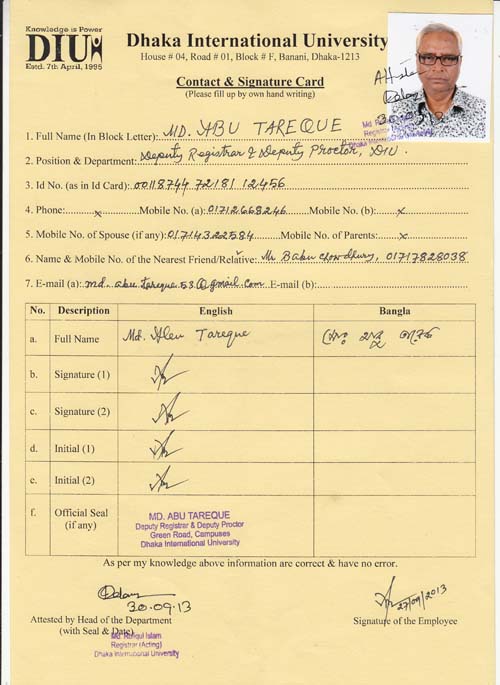 Knowledge is Power
DIU
Estd. 7th April, 1995
Dhaka International University
House # 04, Road # 01, Block # F, Banani, Dhaka-1213
Contact & Signature Card
(Please fill up by own hand writing)
30.09.13
1. Full Name (In Block Letter): MD. ABU TAREQUE
2. Position & Department: Deputy Registrar & Deputy Proctor, DIU.
3. Id No. (as in Id Card): 00118744 72181 12456
4. Phone: x Mobile No. (a): 01712668246 Mobile No. (b): x
5. Mobile No. of Spouse (if any): 01714322584 Mobile No. of Parents: x
6. Name & Mobile No. of the Nearest Friend/Relative: Mr Babu Chowdhury, 01717828038
7. E-mail (a): md.abu.tareque.53@gmail.com E-mail (b):
No. Description English Bangla
a. Full Name Md. Abu Tareque মোঃ আবু তারেক
b. Signature (1)
c. Signature (2)
d. Initial (1)
e. Initial (2)
f. Official Seal (if any)
MD. ABU TAREQUE
Deputy Registrar & Deputy Proctor
Green Road, Campuses
Dhaka International University
As per my knowledge above information are correct & have no error.
30.09.13
27/09/2013
Attested by Head of the Department
(with Seal & Date)
Signature of the Employee
Md. Rafiqul Islam
Registrar (Acting)
Dhaka International University